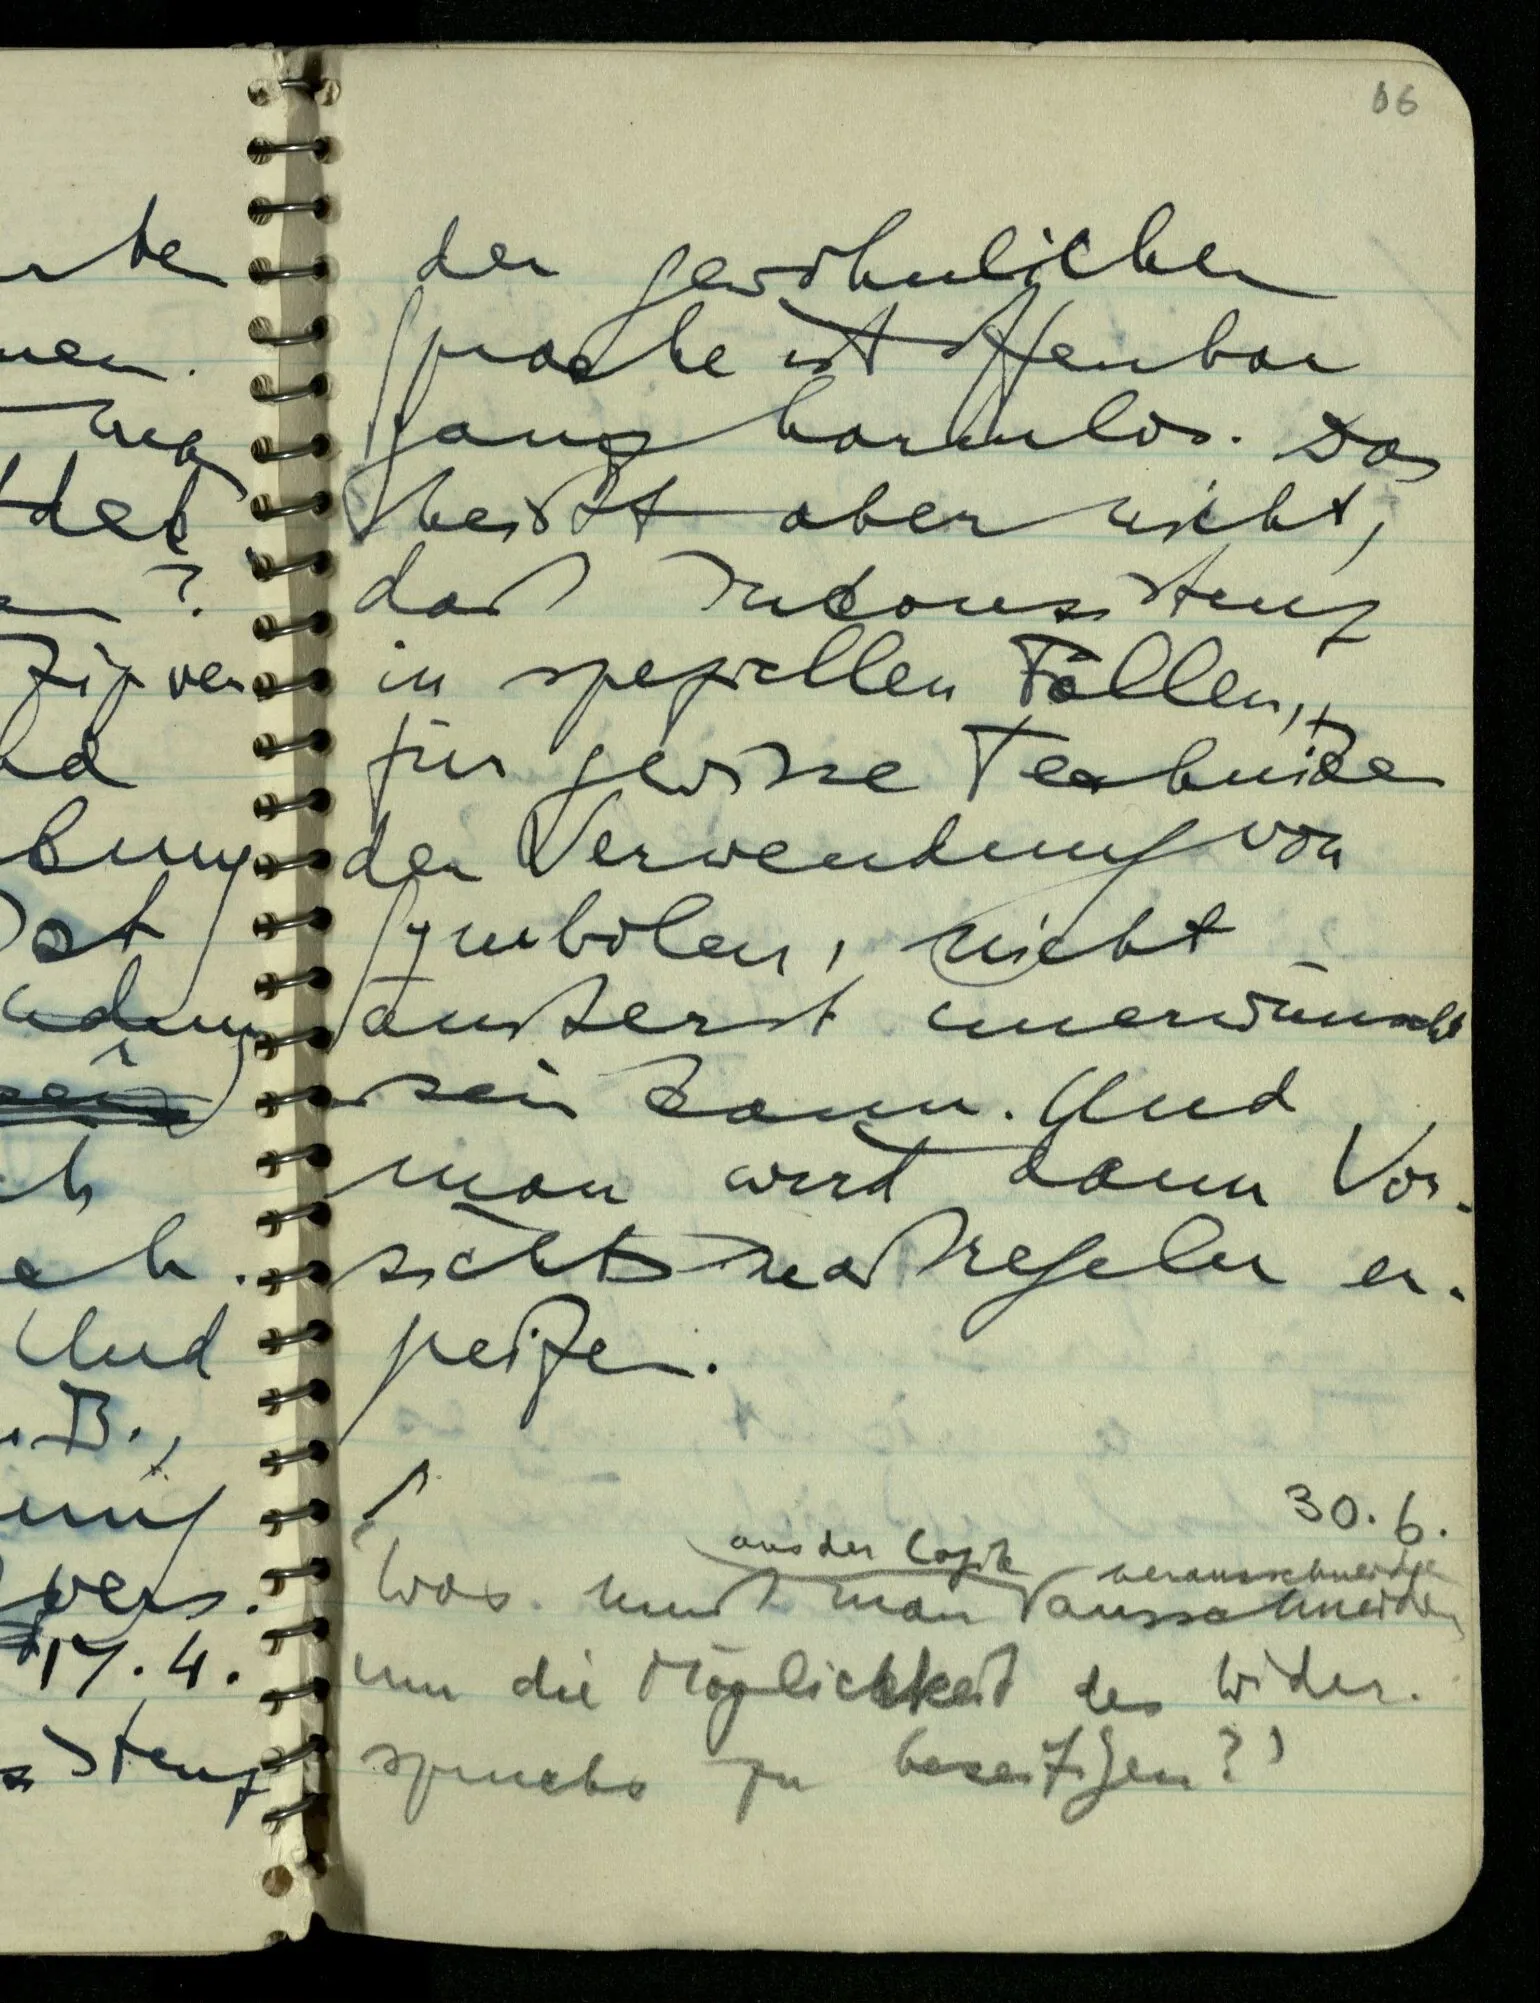 rten
nen.
tdet
en ?
zip ver
nd
bung
Ist
ndung
sein
ch
eh.
Und
z.B.,
ung
vers.
17.4.
stenz
06
der gewöhnlichen
Sprache ist offenbar
ganz harmlos. Das
heißt aber nicht,
daß Inconsistenz
in speziellen Fällen,
für gewisse Techniken
der Verwendung von
Symbolen, nicht
äußerst unerwünscht
sein kann. Und
man wird dann Vor-
sichtsmaßregeln er-
greifen.
30.6.
aus der Logik herausschneiden
Was muß man ausschneiden
um die Möglichkeit des Wider-
spruchs zu beseitigen?